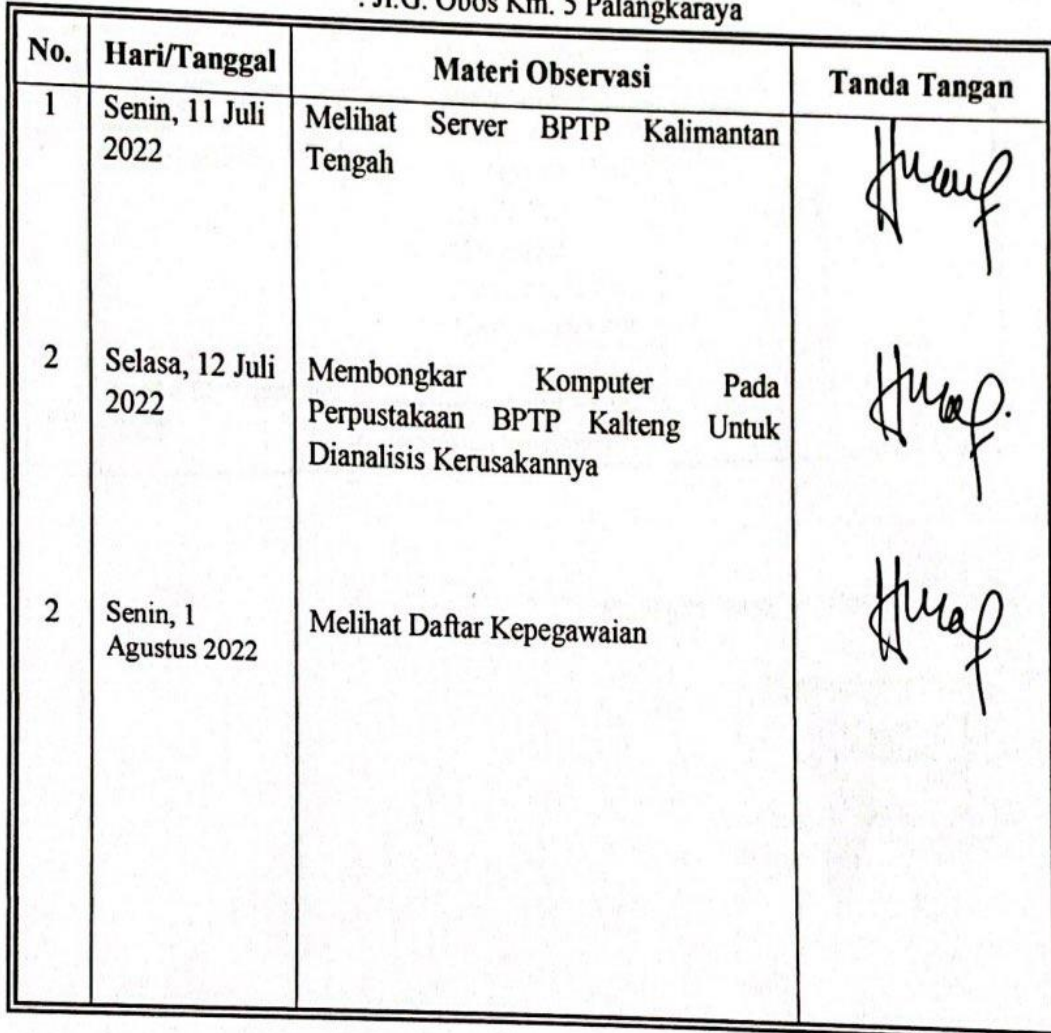 : Jl.G. Obos Km. 5 Palangkaraya
No. Hari/Tanggal Materi Observasi Tanda Tangan
1 Senin, 11 Juli Melihat Server BPTP Kalimantan
2022 Tengah
2 Selasa, 12 Juli Membongkar Komputer Pada
2022 Perpustakaan BPTP Kalteng Untuk
Dianalisis Kerusakannya
2 Senin, 1 Melihat Daftar Kepegawaian
Agustus 2022